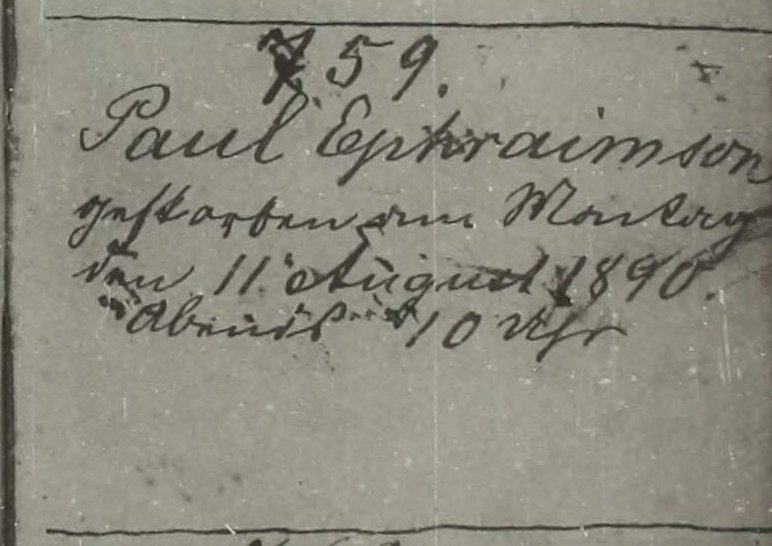 759.
Paul Ephraimson
gestorben am Montag
den 11 August 1890.
Abends 10 Uhr